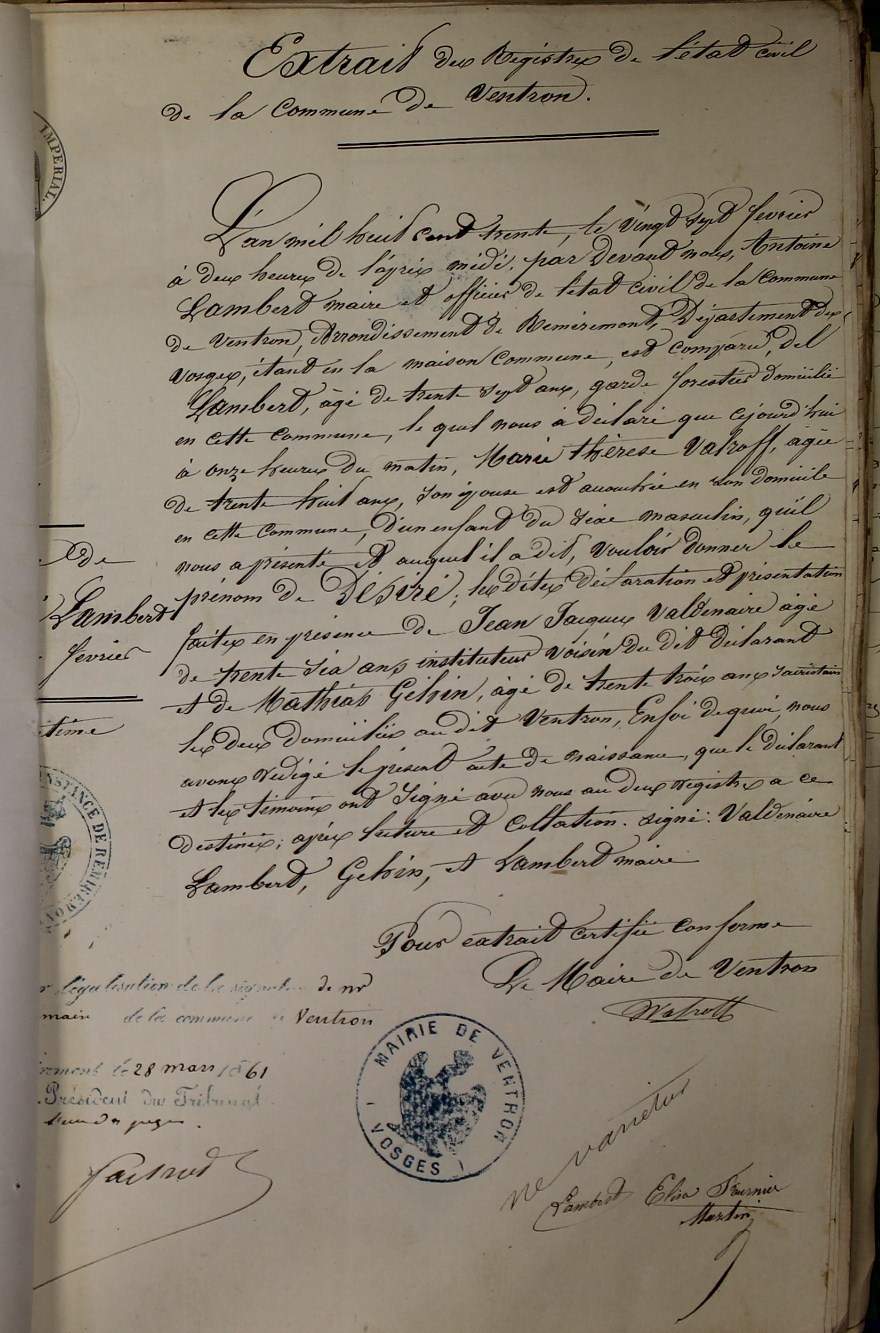 Extrait des Registres de l'état civil
de la Commune de Ventron.
IMPERIAL.
L'an mil huit cent trente, le vingt sept fevrier
à deux heures de l'après midi, par devant nous, Antoine
Lambert maire et officier de l'état civil de la commune
de Ventron, Arrondissement de Remiremont, Département des
Vosges, étant en la maison commune, est comparu, del
Lambert, âgé de trente sept ans, garde forestier domicilié
en cette commune, le quel nous à déclaré que cejourd'hui
à onze heures du matin, Marie thérese Valroff, âgée
de trente huit ans, son épouse est accouchée en son domicile
en cette commune, d'un enfant du sexe masculin, qu'il
nous a présenté et auquel il a dit, vouloir donner le
prénom de Désiré; les dites déclaration et présentation
faites en présence de Jean Jacques Valdenaire âgé
de trente six ans instituteur voisin du dit déclarant
et de Mathias Gehin, âgé de trente trois ans sacristain
les deux domiciliés au dit Ventron, En foi de quoi, nous
avons rédigé le présent acte de naissance, que le déclarant
et les témoins ont signé avec nous au deux registres a ce
destinés; après lecture et collation. signé: Valdenaire
Lambert, Gehin, et Lambert maire
de
Lambert
fevrier
itime
INSTANCE DE REMIREMONT
Pour extrait certifié conforme
Le Maire de Ventron
Valroff
r légalisation de la signature de mr
maire de la commune de Ventron
iremont le 28 mars 1861
Président du Tribunal
MAIRIE DE VENTRON
VOSGES
ne varietur
Lambert Elisa Fournier
Martin